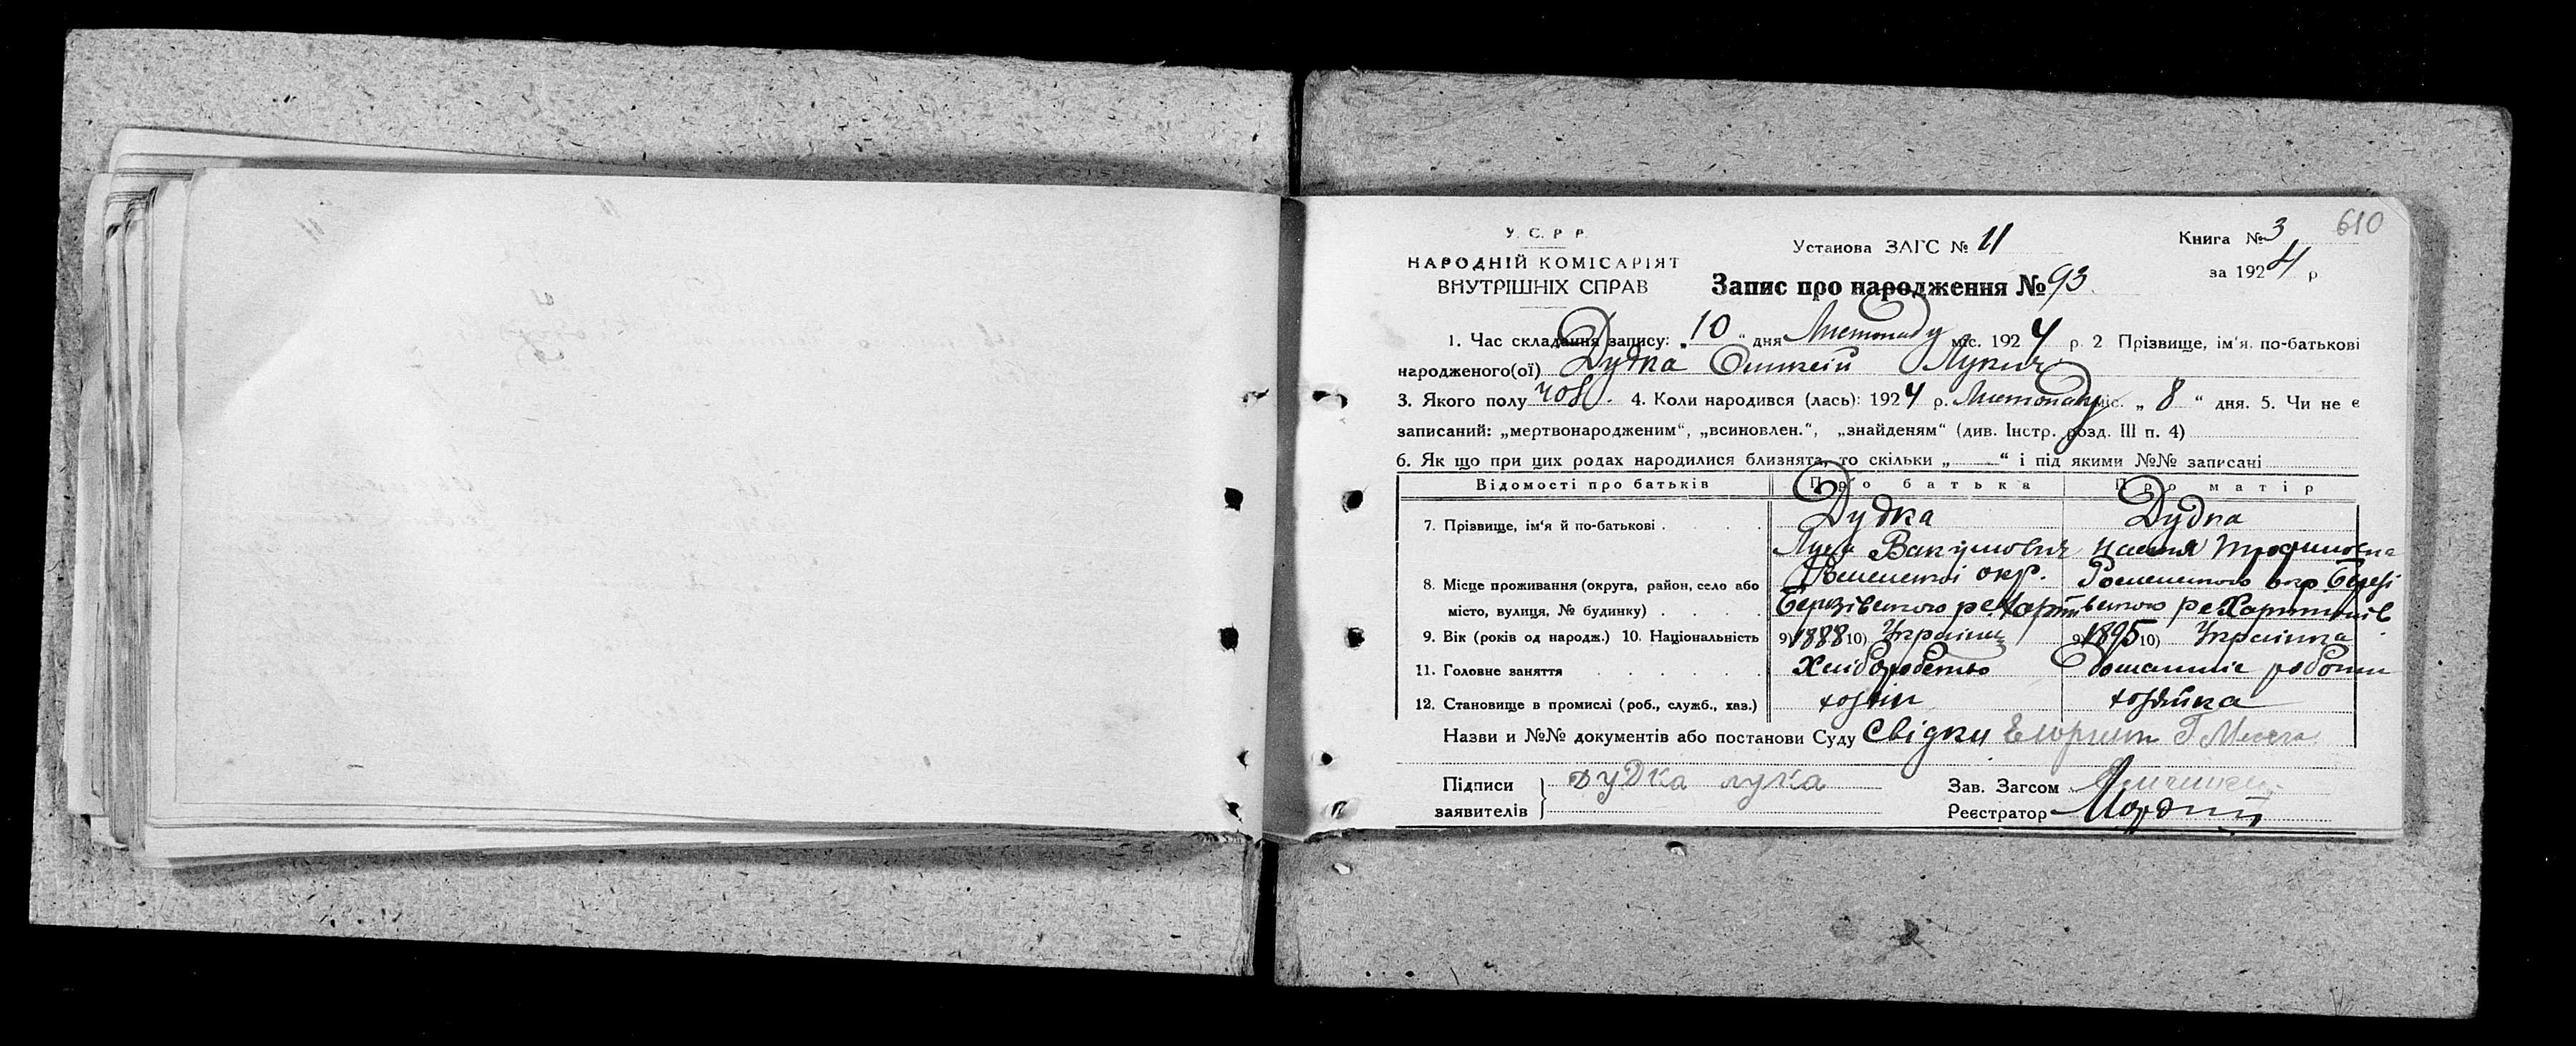 610
У. С. Р. Р.
НАРОДНІЙ КОМІСАРІЯТ
ВНУТРІШНІХ СПРАВ
Установа ЗАГС № 11
Книга № 3
за 1924 р
Запис про народження № 93
1. Час складання запису: „10“ дня Листопаду міс. 1924 р. 2 Прізвище, ім‘я, по-батькові
народженого(ої) Дудка Лукич
3. Якого полу чол. 4. Коли народився (лась): 1924 р. Листопаду міс. „8“ дня. 5. Чи не є
записаний: „мертвонародженим“, „всиновлен.“, „знайденям“ (див. Інстр. розд. III п. 4)
6. Як що при цих родах народилися близнята, то скільки „ “ і під якими №№ записані
Відомості про батьків Про батька Про матір
7. Прізвище, ім‘я й по-батькові Дудка Дудка
Лука Вакумович Настя Трофимовна
8. Місце проживання (округа, район, село або Роменської окр. Роменського окр Березі
місто, вулиця, № будинку) Березівського ре вського ре Хоминців
9. Вік (років од народж.) 10. Національність 9) 1888 10) Українець 9) 1895 10) Українка
11. Головне заняття Хліборобство Домашніе роботи
12. Становище в промислі (роб., служб., хаз.) хозяїн хозяйка
Назви и №№ документів або постанови Суду Свідки
Підписи
заявителів
дудка лука
Зав. Загсом
Реєстратор